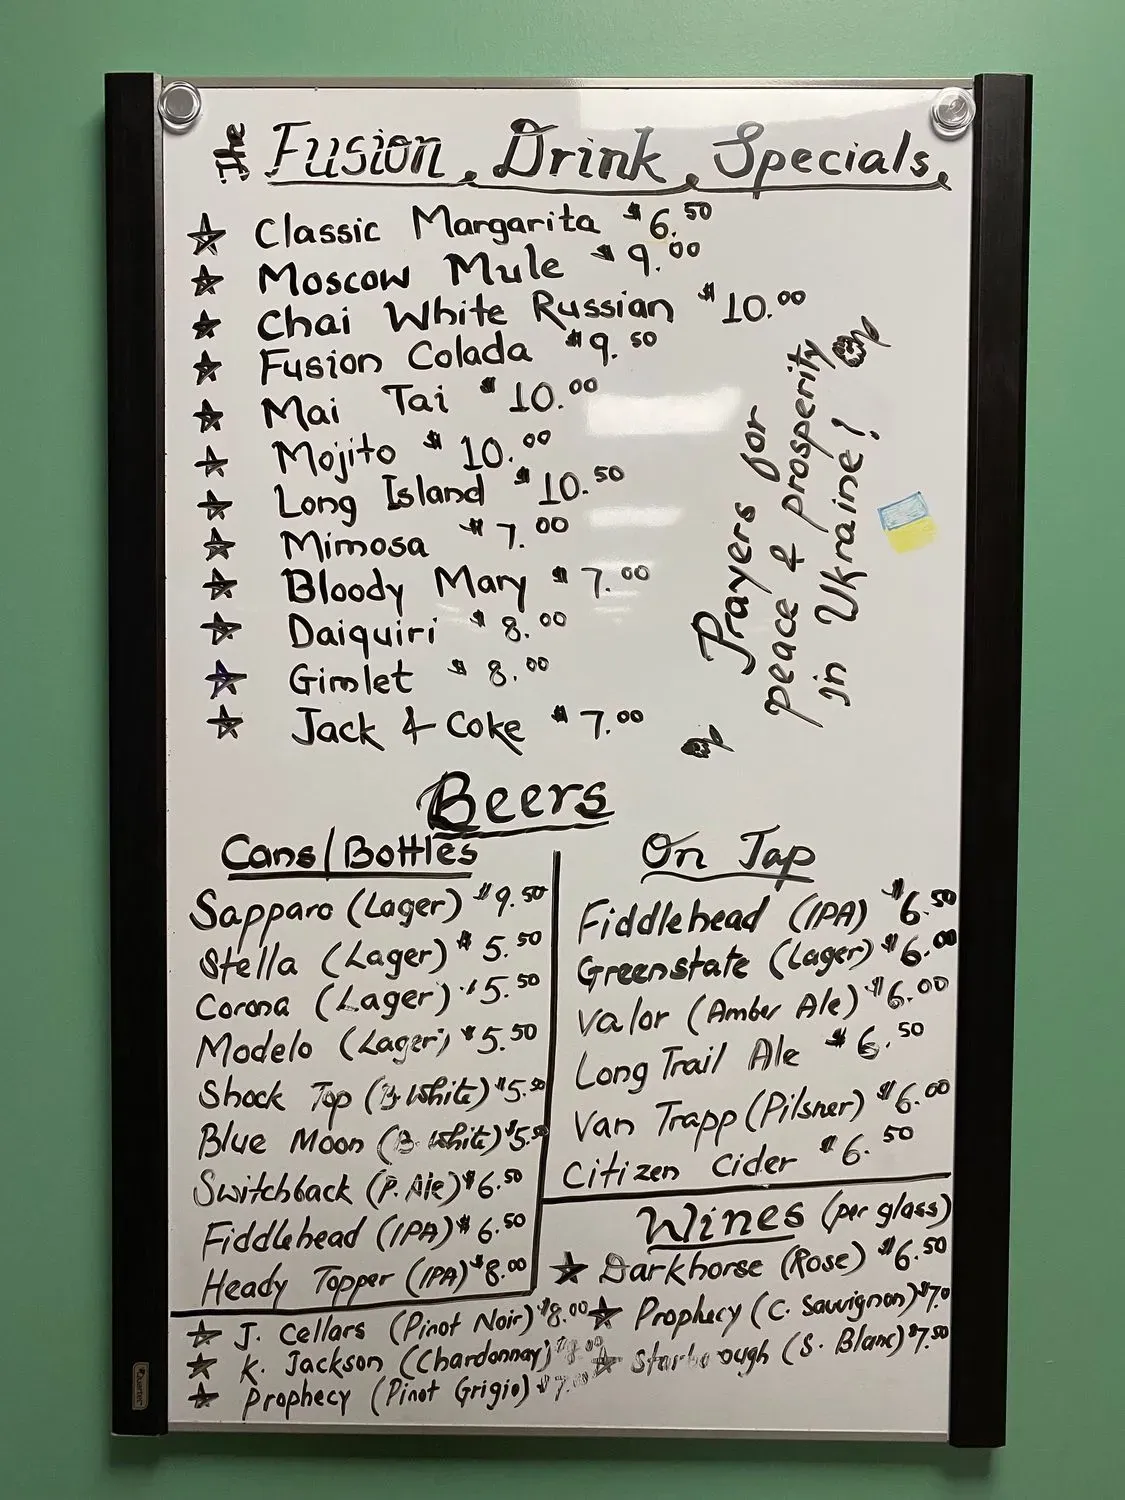 The Fusion Drink Specials
Classic Margarita $6.50
Moscow Mule $9.00
Chai White Russian $10.00
Fusion Colada $9.50
Mai Tai $10.00
Mojito $10.00
Long Island $10.50
Mimosa $7.00
Bloody Mary $7.00
Daiquiri $8.00
Gimlet $8.00
Jack & Coke $7.00
Prayers for
peace & prosperity
in Ukraine!
Beers
Cans/Bottles
Sapparo (Lager) $9.50
Stella (Lager) $5.50
Corona (Lager) $5.50
Modelo (Lager) $5.50
Shock Top (B. White) $5.50
Blue Moon (B. White) $5.50
Switchback (P. Ale) $6.50
Fiddlehead (IPA) $6.50
Heady Topper (IPA) $8.00
On Tap
Fiddlehead (IPA) $6.50
Greenstate (Lager) $6.00
Valor (Amber Ale) $6.00
Long Trail Ale $6.50
Van Trapp (Pilsner) $6.00
Citizen Cider $6.50
Wines (per glass)
Darkhorse (Rose) $6.50
Prophecy (C. Sauvignon) $7.0
Starborough (S. Blanc) $7.50
J. Cellars (Pinot Noir) $8.00
K. Jackson (Chardonnay)
Prophecy (Pinot Grigio) $7.00
Quartet